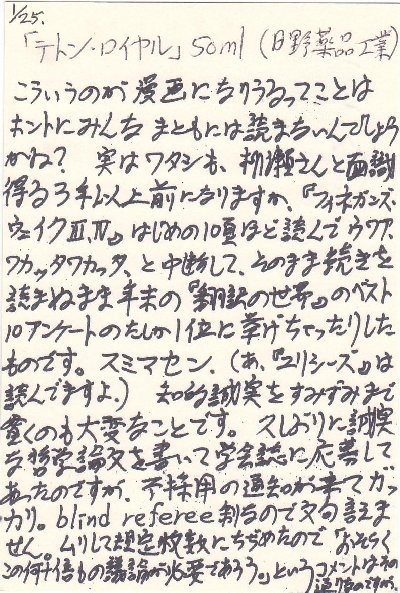 1/25.
「テトン・ロイヤル」50ml (日野薬品工業)
こういうのが漫画になりうるってことは
ホントにみんなまともには読まないんでしょう
かね? 実はワタシも、柳瀬さんと面識
得る3年以上前になりますが、『フィネガンズ・
ウェイクⅢ,Ⅳ』はじめの10頁ほど読んでウワア、
ワカッタワカッタ、と中断して、そのまま続きを
読まぬまま年末の『翻訳の世界』のベスト
10アンケートのたしか1位に挙げちゃったりした
ものです。スミマセン.(あ、『ユリシーズ』は
読んでますよ.) 知的誠実をすみずみまで
貫くのも大変なことです。久しぶりに誠実
な哲学論文を書いて学会誌に応募して
あったのですが、不採用の通知が来てガッ
カリ。blind referee制なので文句言えま
せん。ムリして規定枚数にちぢめたので「おそらく
この何十倍もの議論が必要であろう。」という コメントはその
通りなのですが。